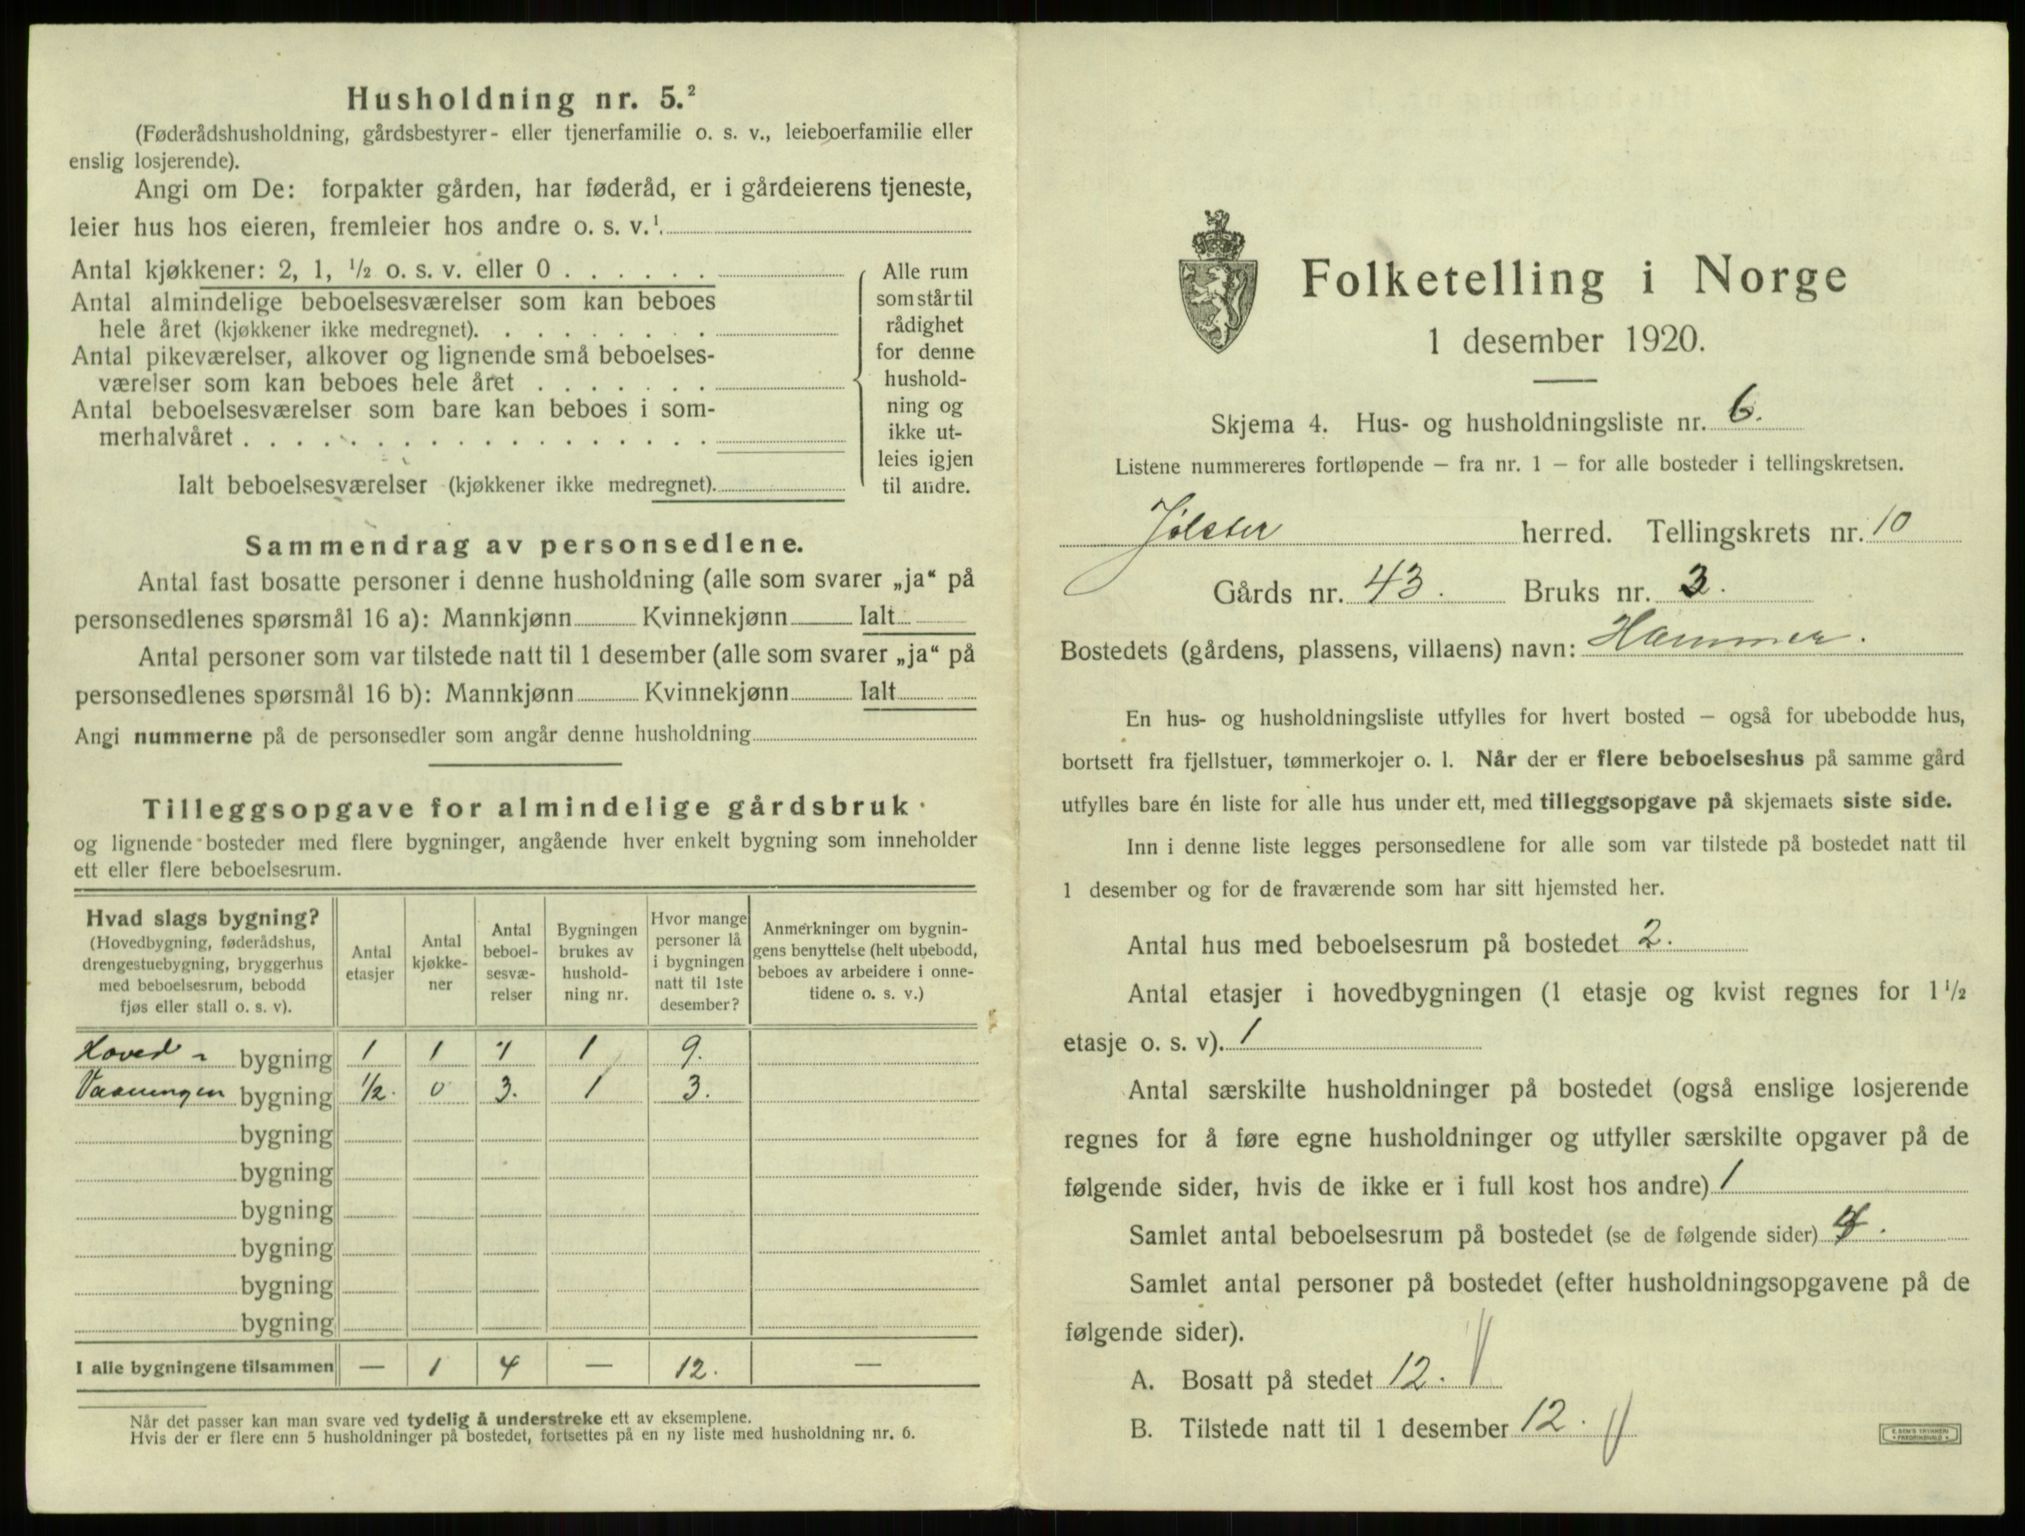 Husholdning nr. 5.²
(Føderådshusholdning, gårdsbestyrer- eller tjenerfamilie o. s. v., leieboerfamilie eller
enslig losjerende).
Angi om De: forpakter gården, har føderåd, er i gårdeierens tjeneste,
leier hus hos eieren, fremleier hos andre o. s. v.¹
Antal kjøkkener: 2, 1, ½ o. s. v. eller 0
Antal almindelige beboelsesværelser som kan beboes
hele året (kjøkkener ikke medregnet).
Antal pikeværelser, alkover og lignende små beboelses-
værelser som kan beboes hele året
Antal beboelsesværelser som bare kan beboes i som-
merhalvåret
Ialt beboelsesværelser (kjøkkener ikke medregnet).
Alle rum
som står til
rådighet
for denne
hushold-
ning og
ikke ut-
leies igjen
til andre.
Sammendrag av personsedlene.
Antal fast bosatte personer i denne husholdning (alle som svarer „ja“ på
personsedlenes spørsmål 16 a): Mannkjønn Kvinnekjønn Ialt
Antal personer som var tilstede natt til 1 desember (alle som svarer „ja“ på
personsedlenes spørsmål 16 b): Mannkjønn Kvinnekjønn Ialt
Angi nummerne på de personsedler som angår denne husholdning
Tilleggsopgave for almindelige gårdsbruk
og lignende bosteder med flere bygninger, angående hver enkelt bygning som inneholder
ett eller flere beboelsesrum.
Hvad slags bygning?
(Hovedbygning, føderådshus,
drengestuebygning, bryggerhus
med beboelsesrum, bebodd
fjøs eller stall o. s. v).
Antal
etasjer
Antal
kjøkke-
ner
Antal
beboel-
sesvæ-
relser
Bygningen
brukes av
hushold-
ning nr.
Hvor mange
personer lå
i bygningen
natt til 1ste
desember?
Anmerkninger om bygnin-
gens benyttelse (helt ubebodd,
beboes av arbeidere i onne-
tidene o. s. v.)
Hoved - bygning 1 1 1 1 9.
bygning 1/2. 0 3. 1 3.
bygning
bygning
bygning
bygning
bygning
bygning
I alle bygningene tilsammen — 1 4 — 12. —
Når det passer kan man svare ved tydelig å understreke ett av eksemplene.
Hvis der er flere enn 5 husholdninger på bostedet, fortsettes på en ny liste med husholdning nr. 6.
Folketelling i Norge
1 desember 1920.
Skjema 4. Hus- og husholdningsliste nr. 6.
Listene nummereres fortløpende – fra nr. 1 – for alle bosteder i tellingskretsen.
Jølster herred. Tellingskrets nr. 10
Gårds nr. 43. Bruks nr. 3.
Bostedets (gårdens, plassens, villaens) navn: Hammer.
En hus- og husholdningsliste utfylles for hvert bosted – også for ubebodde hus,
bortsett fra fjellstuer, tømmerkojer o. l. Når der er flere beboelseshus på samme gård
utfylles bare én liste for alle hus under ett, med tilleggsopgave på skjemaets siste side.
Inn i denne liste legges personsedlene for alle som var tilstede på bostedet natt til
1 desember og for de fraværende som har sitt hjemsted her.
Antal hus med beboelsesrum på bostedet 2.
Antal etasjer i hovedbygningen (1 etasje og kvist regnes for 1 ½
etasje o. s. v). 1
Antal særskilte husholdninger på bostedet (også enslige losjerende
regnes for å føre egne husholdninger og utfyller særskilte opgaver på de
følgende sider, hvis de ikke er i full kost hos andre) 1
Samlet antal beboelsesrum på bostedet (se de følgende sider) 4.
Samlet antal personer på bostedet (efter husholdningsopgavene på de
følgende sider).
A. Bosatt på stedet 12.
B. Tilstede natt til 1 desember 12.